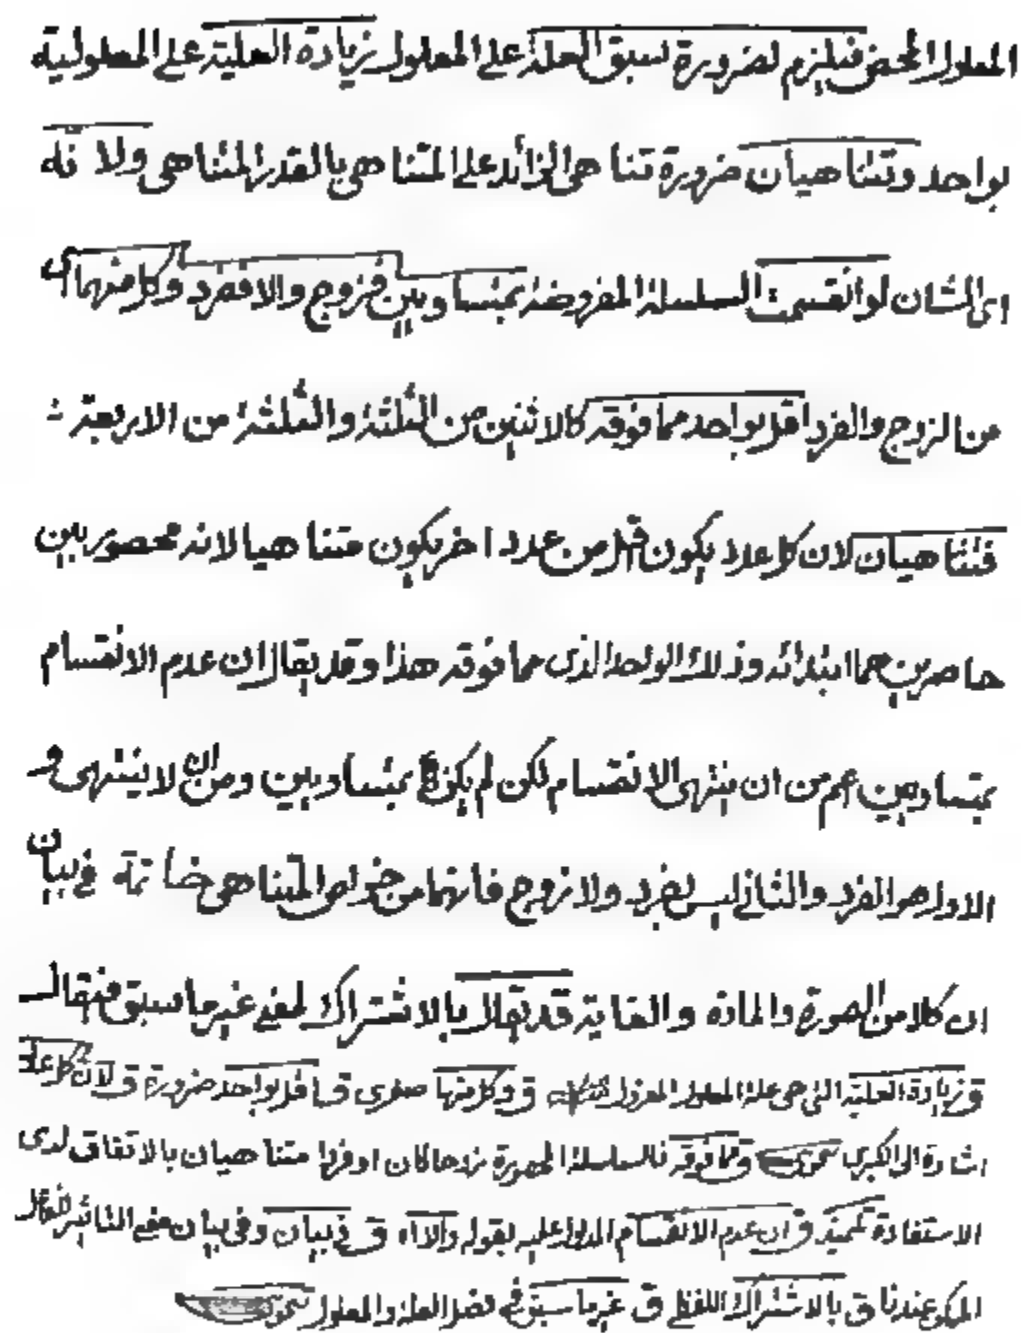 المعلول المحض فيلزم لضرورة سبق العلة على المعلول زيادة العلية على المعلولية
بواحد وتتناهيان ضرورة تناهى الزائد على المتناهى بالقدر المتناهى ولا نه
اى الشان لو انقسمت السلسلة المفروضة بمتساويين فزوج والا ففرد وكل منهما اى
من الزوج والفرد اقل بواحد مما فوقه كالاثنين من الثلثة والثلثة من الاربعة
فتتناهيان لان كل عدد يكون اقل من عدد اخر يكون متناهيا لانه محصور بين
حاصرين هما ابتدائه وذلك الواحد الذى مما فوقه هذا وقد يقال ان عدم الانقسام
بمتساويين اعم من ان ينتهى الانقسام لكن لم يكن بمتساويين ومن ان لا ينتهى و
الاول هو الفرد والثانى ليس بفرد ولا زوج فانهما من خواص المتناهى خاتمة فى بيان
ان كلا من الصورة والمادة والغاية قد يقال بالاشتراك لمعنى غير ما سبق فيقال
ق زيادة العلية التى هى علة المعلول المعزول ق وكل منها صغرى ق اقل بواحد ضرورة ق لان كل عدد
اشارة الى الكبرى ق مما فوقه فالسلسلة زوجا كان او فردا متناهيان بالاتفاق لدى
الاستفادة ق ان عدم الانقسام المدلول عليه بقوله والا اه ق فى بيان وفى بيان معنى التاثير
عندنا ق بالاشتراك اللفظى ق غير ما سبق فى فصل العلة والمعلول